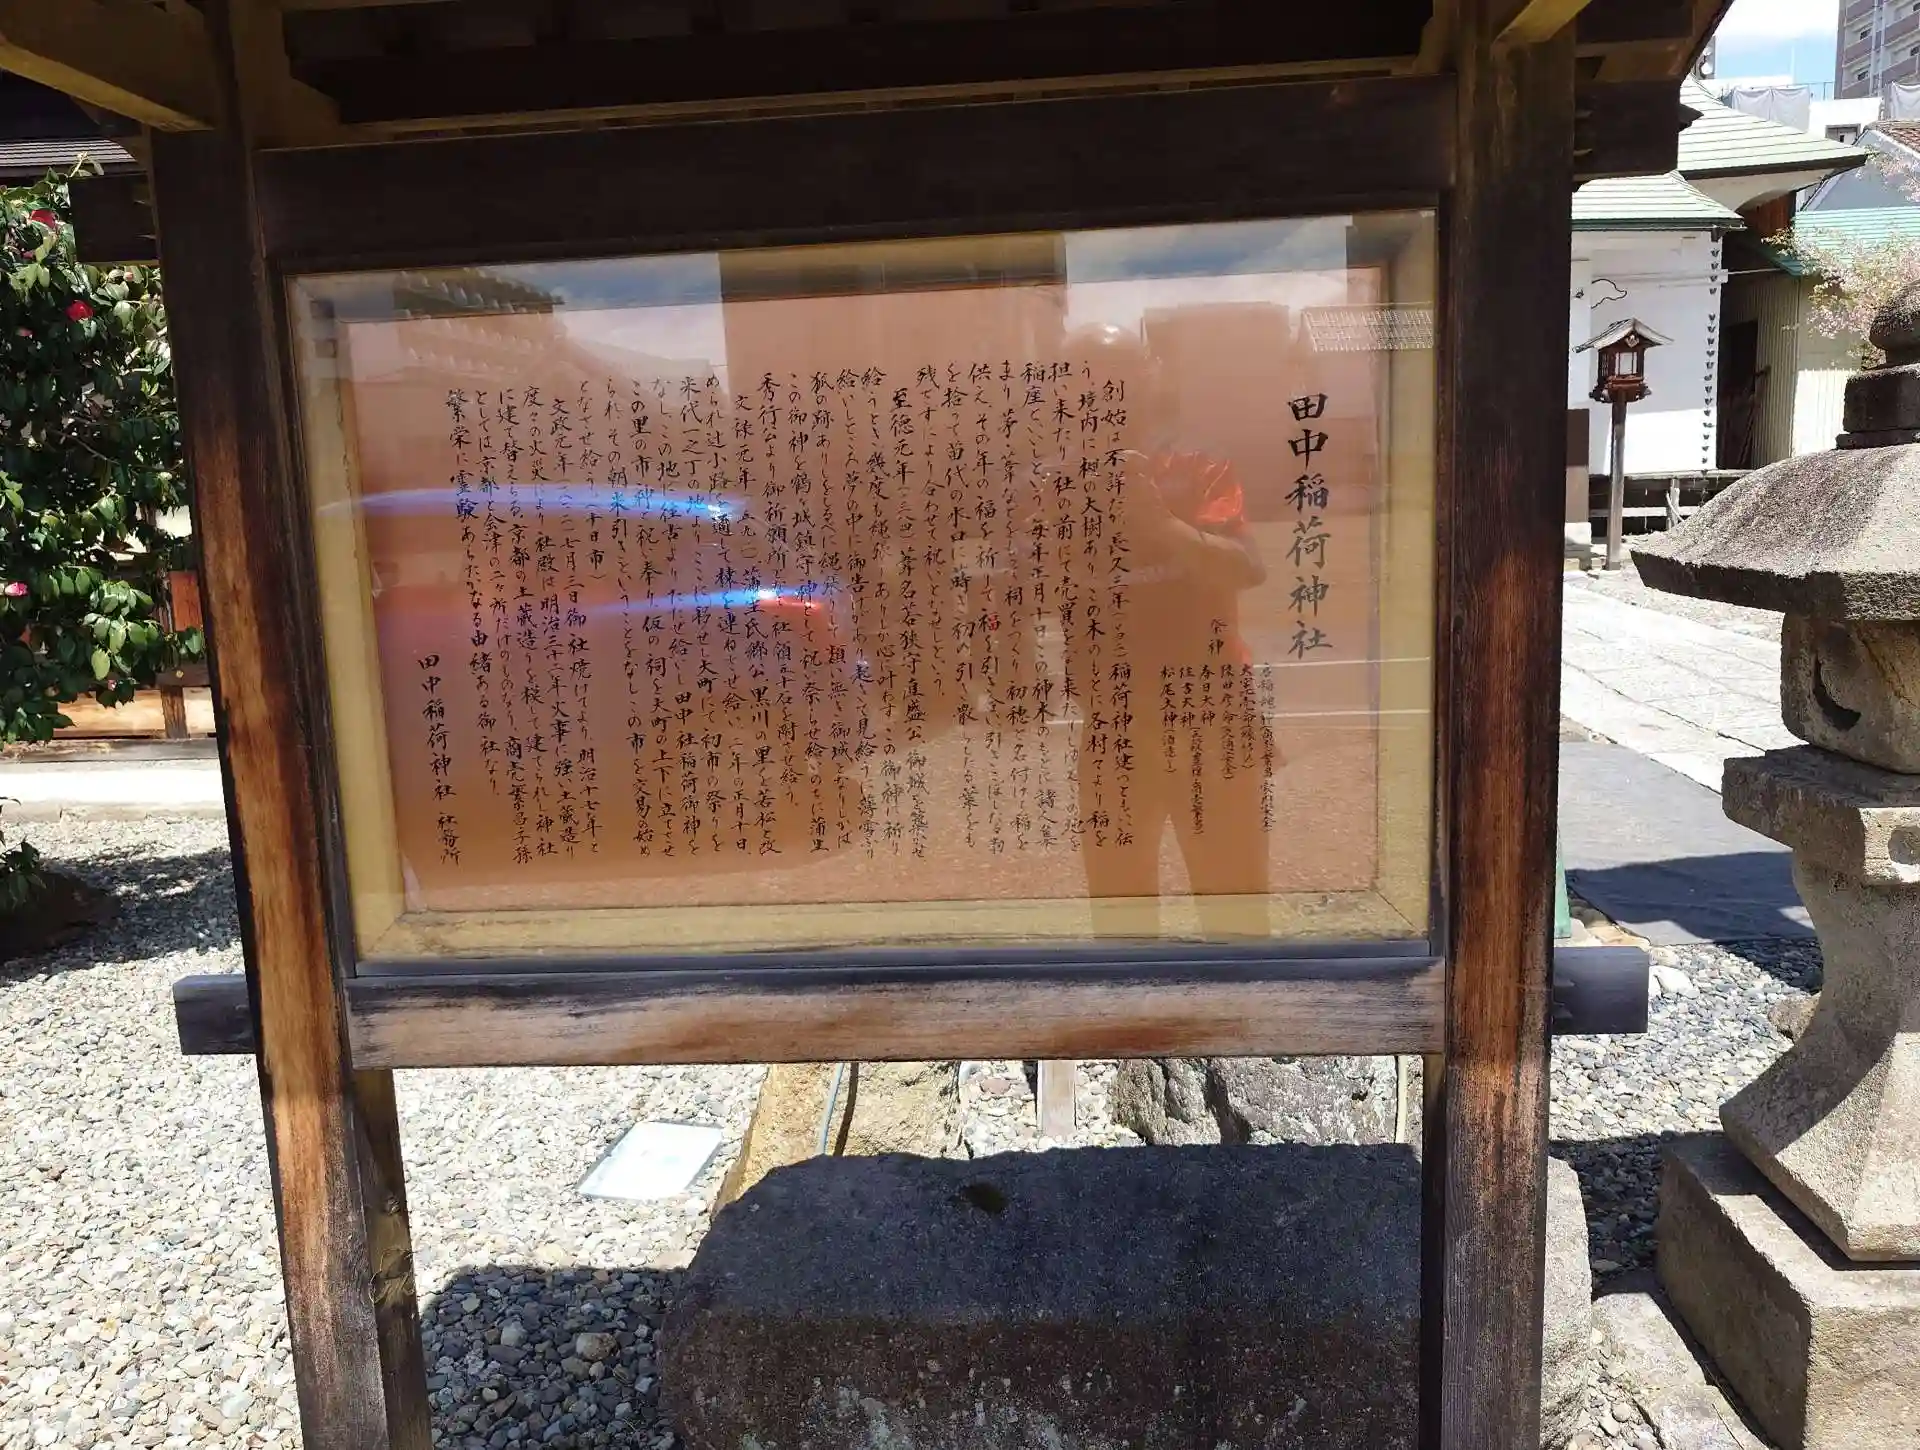 田中稲荷神社
祭神
倉稲魂神(商売繁昌家内安全)
大宮売命(縁結び)
猿田彦命(交通安全)
春日大神
住吉大神
松尾大神(酒造り)
創始は不詳だが、長久三年 稲荷神社建つともいい伝
う。境内に椥の大樹あり、この木のもとに各村々より稲を
担い来たり、社の前にて売買をなし来たりしゆえ、この地を
稲座といいしという。毎年正月十日この神木のもとに諸人集
まり、茅・葦などをもって祠をつくり、初穂と名付けて稲を
供え、その年の福を祈りて福を引き合い、引きこぼしたる籾
を拾って苗代の水口に蒔き、初め引き散らしたる葉をも
残ですにより合わせて祝いとなせしという。
至徳元年(一三八四)葦名若狭守直盛公、御城を築かせ
給うとき、幾度も縄張りありしが心に叶わず、この御神に祈り
給いしところ、夢の中に御告げがあり、起きて見給うに薄雪ふり
狐の跡ありしをしるべに縄張りして類い無き御城となりしかば
この御神を鶴ヶ城鎮守神として祝い奉らせ給い、のちに蒲生
秀行公より御祈願所となし、社領五十石を附させ給う。
文禄元年(一五九二)蒲生氏郷公、黒川の里を若松と改
められ辻小路を通して棟を連ねさせ給い、二年の正月十日、
米代一之丁の地よりここに移せし大町にて初市の祭りを
なし、この地に往古よりたたせ給いし田中社稲荷御神を
この里の市神と祝い奉り、仮の祠を大町の上下に立てさせ
られ、その朝米引きということをなし、この市を交易の始め
となさせ給う。(十日市)
文政元年(一八一八)七月三日御社焼けてより、明治十七年と
度々の火災により社殿は明治三十二年火事に強い土蔵造り
に建て替えらる。京都の土蔵造りを模して建てられし神社
としては、京都と会津の二ヶ所だけのものなり、商売繁昌子孫
繁栄に霊験あらたかなる由緒ある御社なり。
田中稲荷神社 社務所